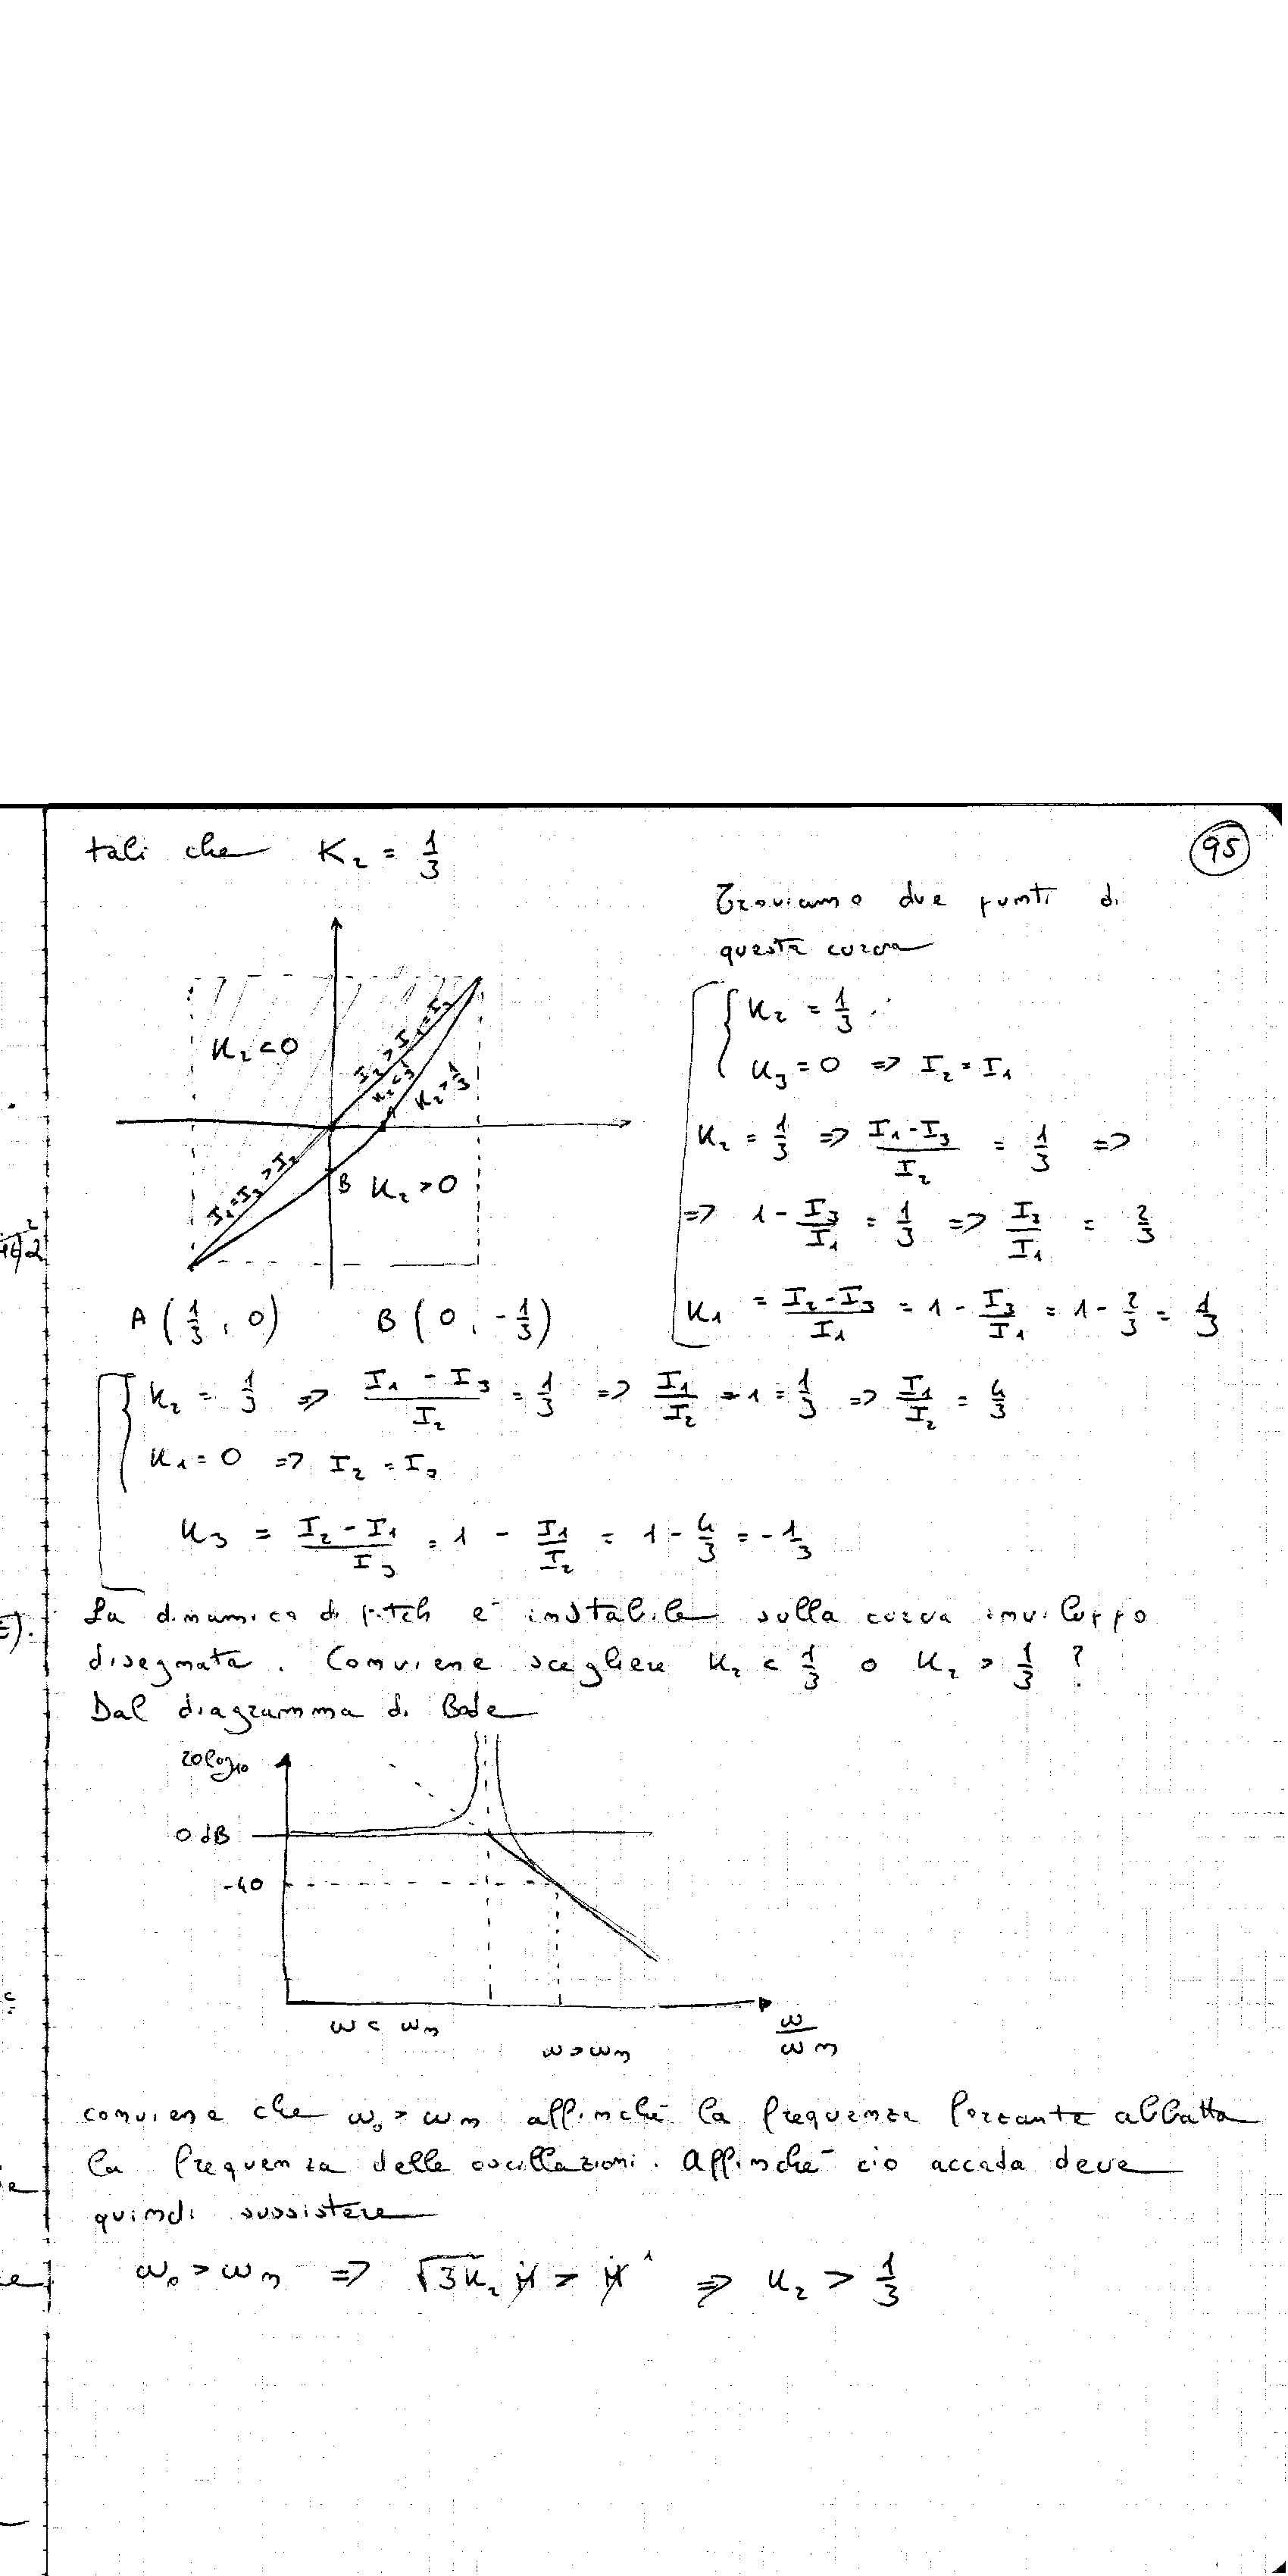 tali che K₂ = 1/3
95
Troviamo due punti di
questa curva
K₂ = 1/3
K₃ = 0 => I₂ = I₁
K₂ = 1/3 => (I₁ - I₃)/I₂ = 1/3 =>
=> 1 - I₃/I₁ = 1/3 => I₃/I₁ = 2/3
K₁ = (I₂ - I₃)/I₁ = 1 - I₃/I₁ = 1 - 2/3 = 1/3
K₂ < 0
K₂ < 1/3
K₂ > 1/3
B K₂ > 0
A (1/3, 0) B (0, -1/3)
K₂ = 1/3 => (I₁ - I₃)/I₂ = 1/3 => I₁/I₂ - 1 = 1/3 => I₁/I₂ = 4/3
K₁ = 0 => I₂ = I₃
K₃ = (I₂ - I₁)/I₃ = 1 - I₁/I₂ = 1 - 4/3 = -1/3
La dinamica di pitch è instabile sulla curva inviluppo
disegnata. Conviene scegliere K₂ < 1/3 o K₂ > 1/3 ?
Dal diagramma di Bode
20log₁₀
0 dB
-40
ω < ωn
ω > ωn
ω/ωn
conviene che ω₀ > ωn affinché la frequenza forzante abbatta
la frequenza delle oscillazioni. Affinché ciò accada deve
quindi sussistere
ω₀ > ωn => √3K₂ Ṁ > Ṁ ¹ => K₂ > 1/3